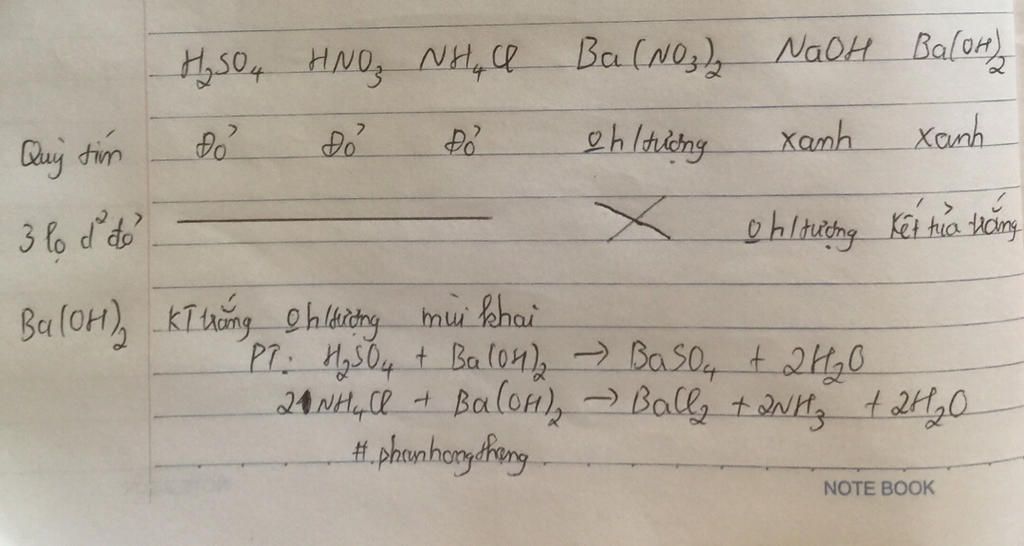 H₂SO₄ HNO₃ NH₄Cl Ba(NO₃)₂ NaOH Ba(OH)₂
Quỳ tím Đỏ Đỏ Đỏ 0 h/tượng xanh xanh
3 lọ d² đỏ 0 h/tượng kết tủa trắng
Ba(OH)₂ KT trắng 0 h/tượng mùi khai
PT: H₂SO₄ + Ba(OH)₂ → BaSO₄ + 2H₂O
2NH₄Cl + Ba(OH)₂ → BaCl₂ + 2NH₃ + 2H₂O
#.phanhongthang
NOTE BOOK